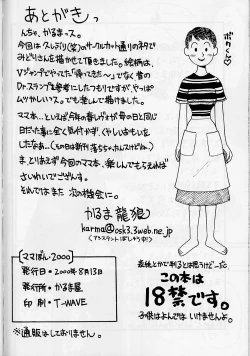 あとがきっ
んちゃ、かるまっス。
今回は久しぶり(笑)のサークルカット通りのネタで
みどりさんを描かせて頂きました。絵柄は、
Vジャンプでやってた「帰ってきた〜」でなく昔の
Dr.スランプを参考にしたつもりですが、やっぱ
ムツかしいっス。でも楽しんで描けました。
ママ本…といえば今年の春レヴォが母の日と同じ
日だった事に全く気付かず、くやしいおもいを
したなあ…(その日は新刊落ちちゃったんスけどね)
ま、とりあえず今回のママ本、楽しんでもらえれば
さいわいでございます。
それではまた次の機会に。
かるま龍狼
karma@osk3.3web.ne.jp
(アシスタント:ぽしゅうゆ)
ボクくん
[ママぽん・2000]
発行日・2000年8月13日
発行所・かるま屋
印刷・T-WAVE
※通販はしておりません。
表紙とかで判るとは思うけど…
この本は
18禁です。
子供はよんではいけませんよ。